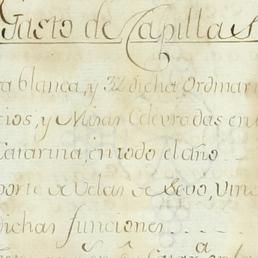 Gasto de Capillas
ra blanca, y 32 dicha Ordinari
cios, y Misas Celevradas en
Catarina, en todo el año
porte de Velas de Sevo, Vino
dichas funciones